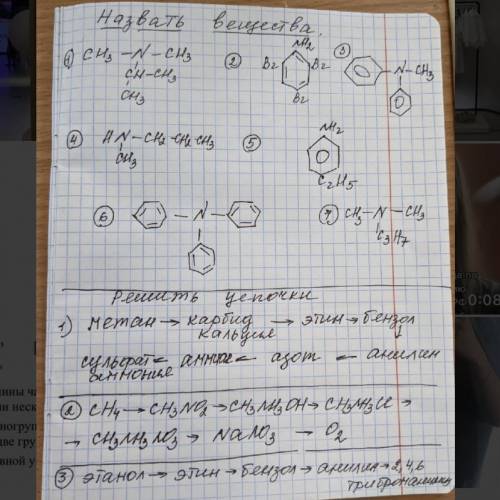 Назвать вещества.
① CH3 – N – CH3
CH – CH3
CH3
②
NH2
Br Br
Br
③
N – CH3
④ HN – CH2 – CH2 – CH3
CH3
⑤
NH2
C2H5
⑥ – N –
⑦ CH3 – N – CH3
C3H7
Решить цепочки
1) метан → карбид кальция → этин → бензол
↓
сульфат аммония ← ← азот ← анилин
② CH4 → CH3NO2 → CH3NH3OH → CH3NH3Cl →
→ CH3NH3NO3 → NaNO3 → O2
③ этанол → этин → бензол → анилин → 2,4,6
триброманилин
0:08